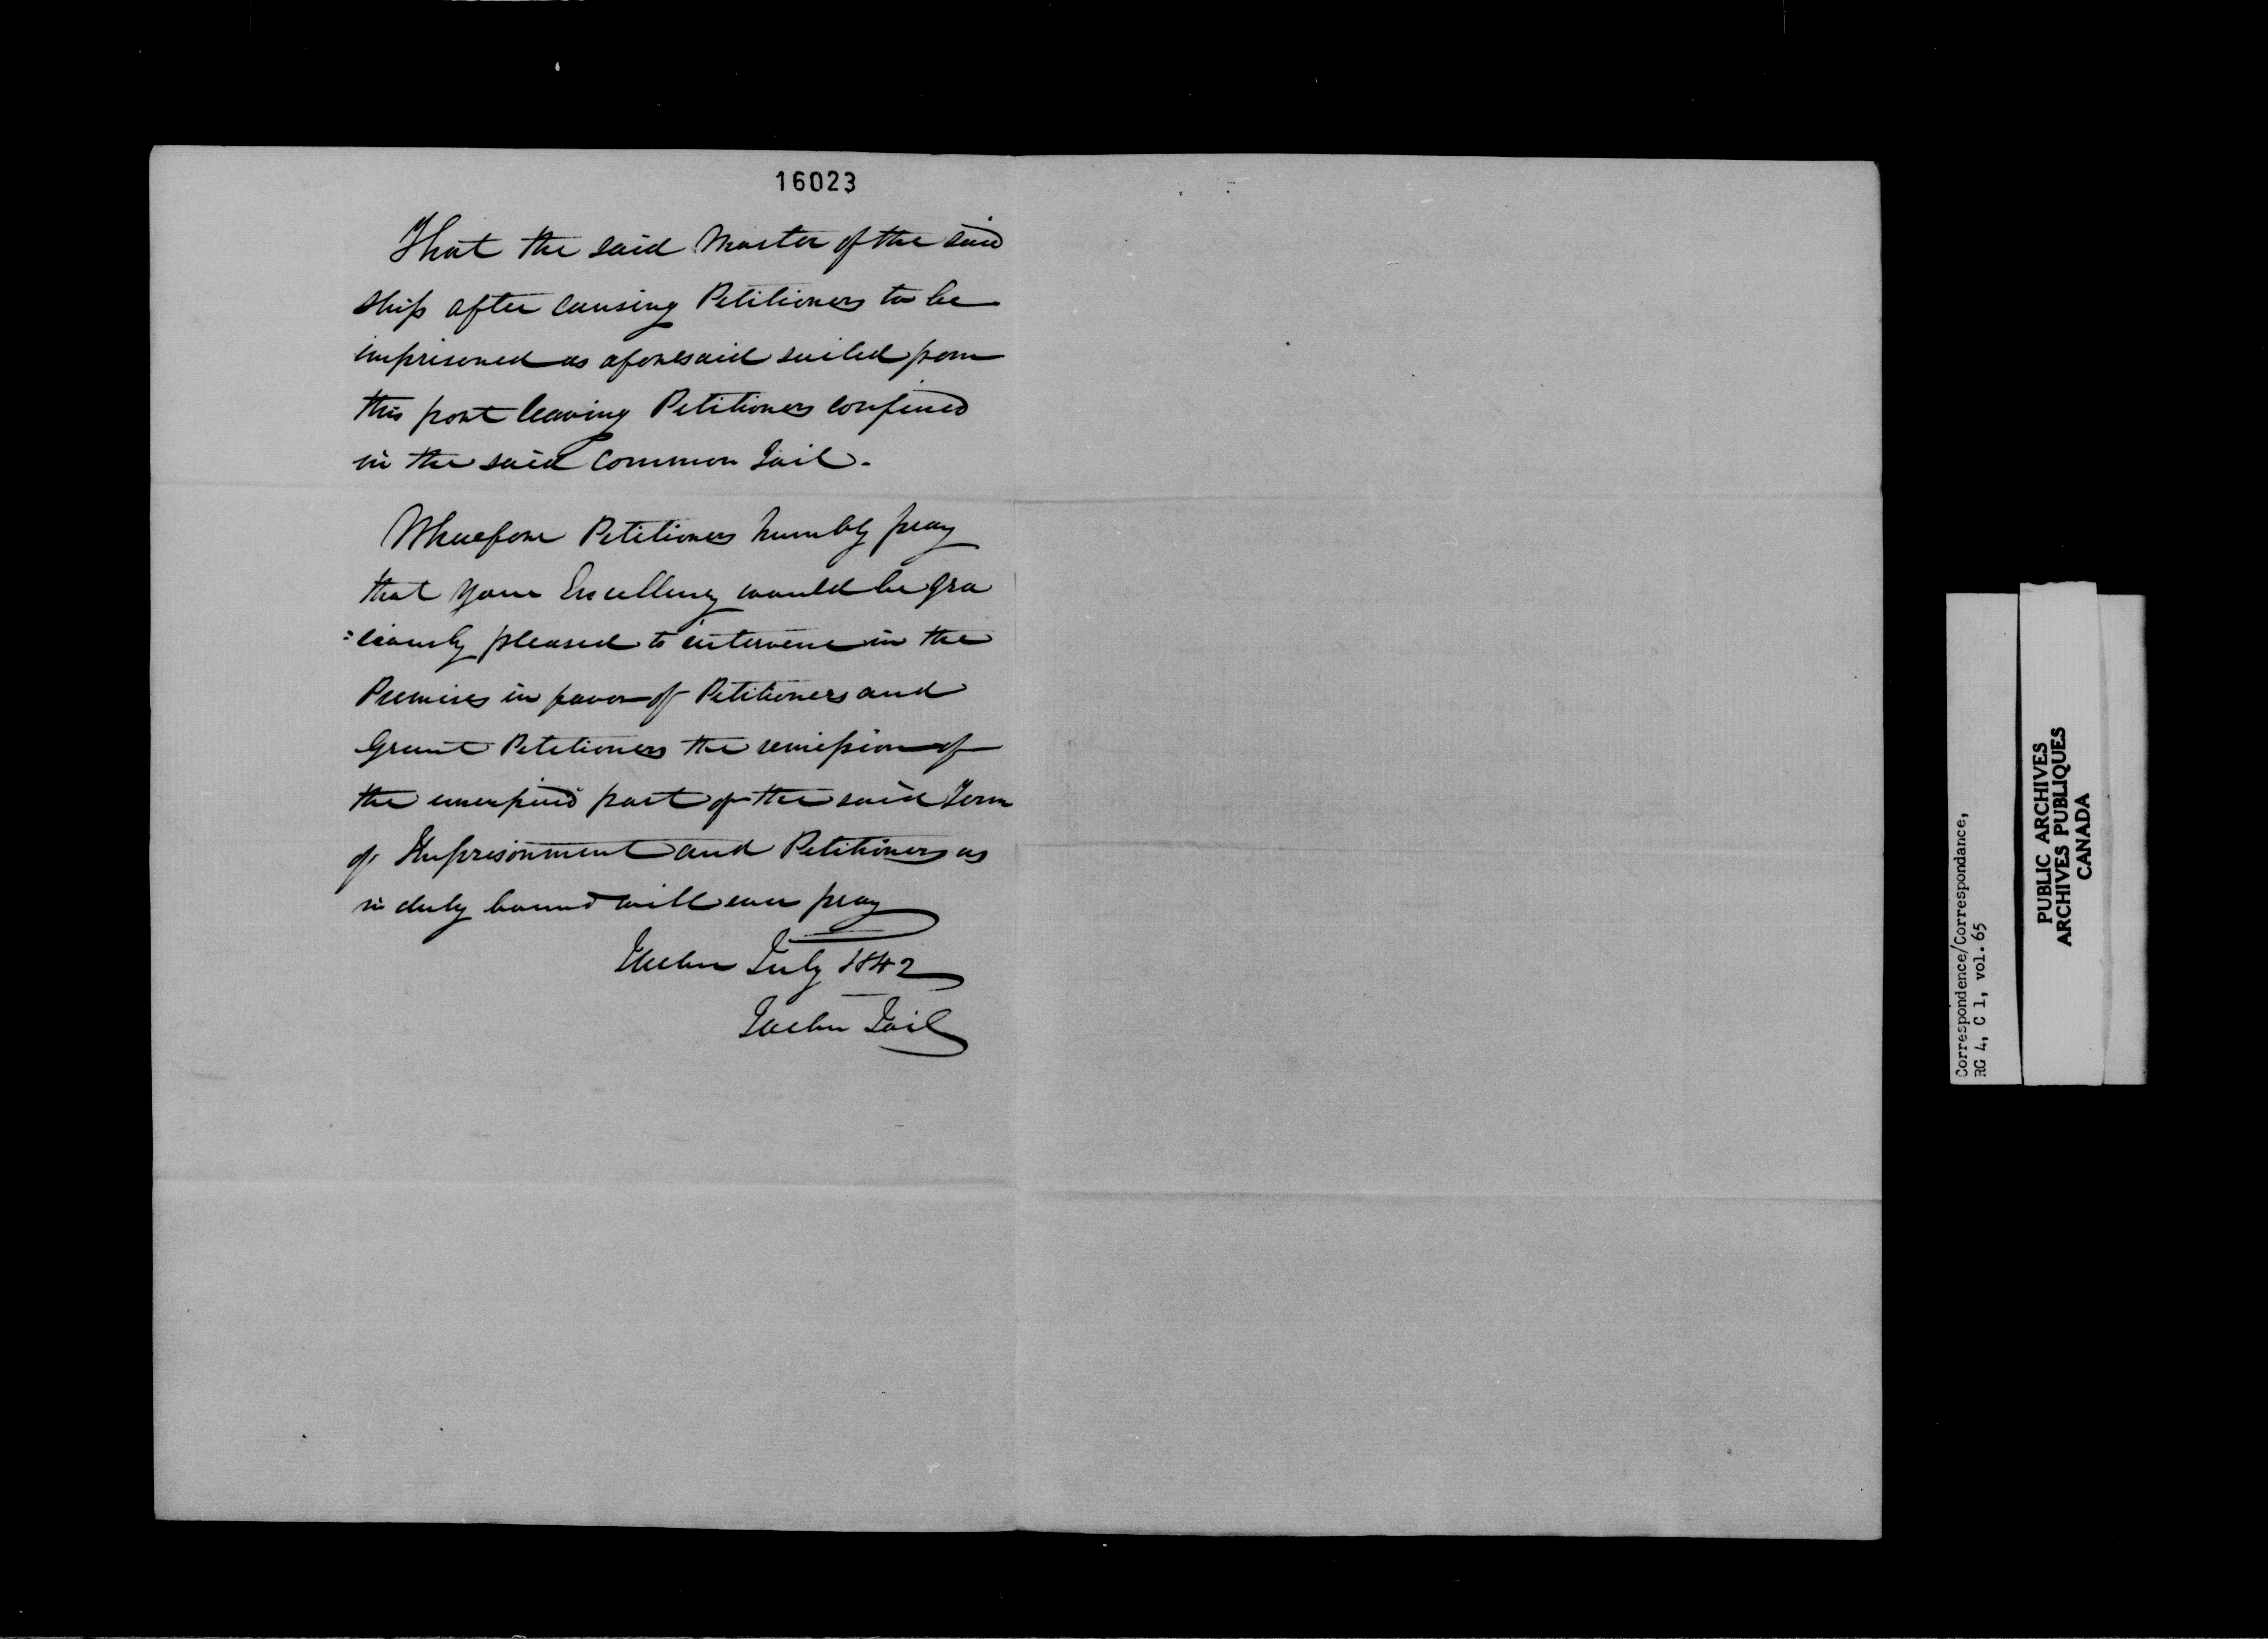 16023
That the said Master of the said
ship after causing Petitioners to be
imprisoned as aforesaid sailed from
this port leaving Petitioners confined
in the said Common Jail.
Wherefore Petitioners humbly pray
that your Excellency would be gra
=ciously pleased to intervene in the
Premises in favor of Petitioners and
Grant Petitioners the remission of
the unexpired part of the said Term
of Imprisonment and Petitioners as
in duty bound will ever pray
Quebec July 1842
Quebec Jail
Correspondence/Correspondance,
RG 4, C 1, vol. 65
PUBLIC ARCHIVES
ARCHIVES PUBLIQUES
CANADA